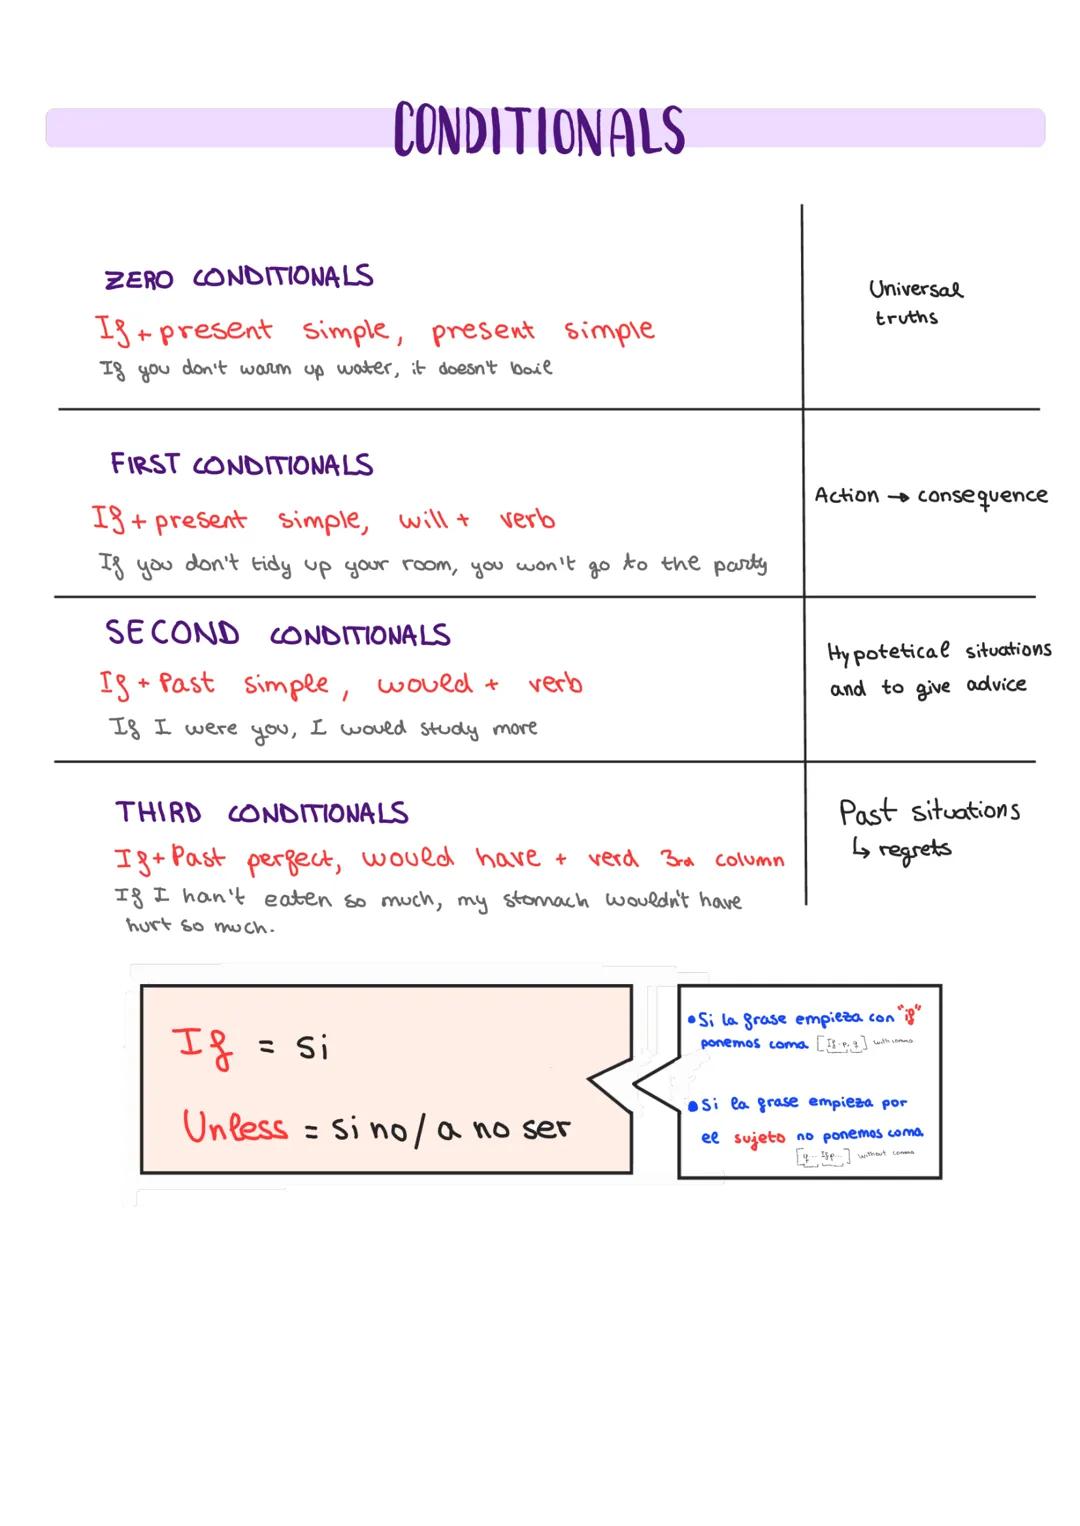 CONDITIONALS
ZERO CONDITIONALS
If + present simple, present simple
If you don't warm up water, it doesn't boil
Universal
truths
FIRST CONDITIONALS
If + present simple, will + verb
If you don't tidy up your room, you won't go to the party
Action → consequence
SECOND CONDITIONALS
If + Past simple, would + verb
If I were you, I would study more
Hypotetical situations
and to give advice
THIRD CONDITIONALS
If + Past perfect, would have + verd 3rd column
If I han't eaten so much, my stomach wouldn't have
hurt so much.
Past situations
↳ regrets
If = si
Unless = si no / a no ser
• Si la frase empieza con "if"
ponemos coma [If p, q] with comma
• Si la frase empieza por
el sujeto no ponemos coma
[q... If p...] without comma